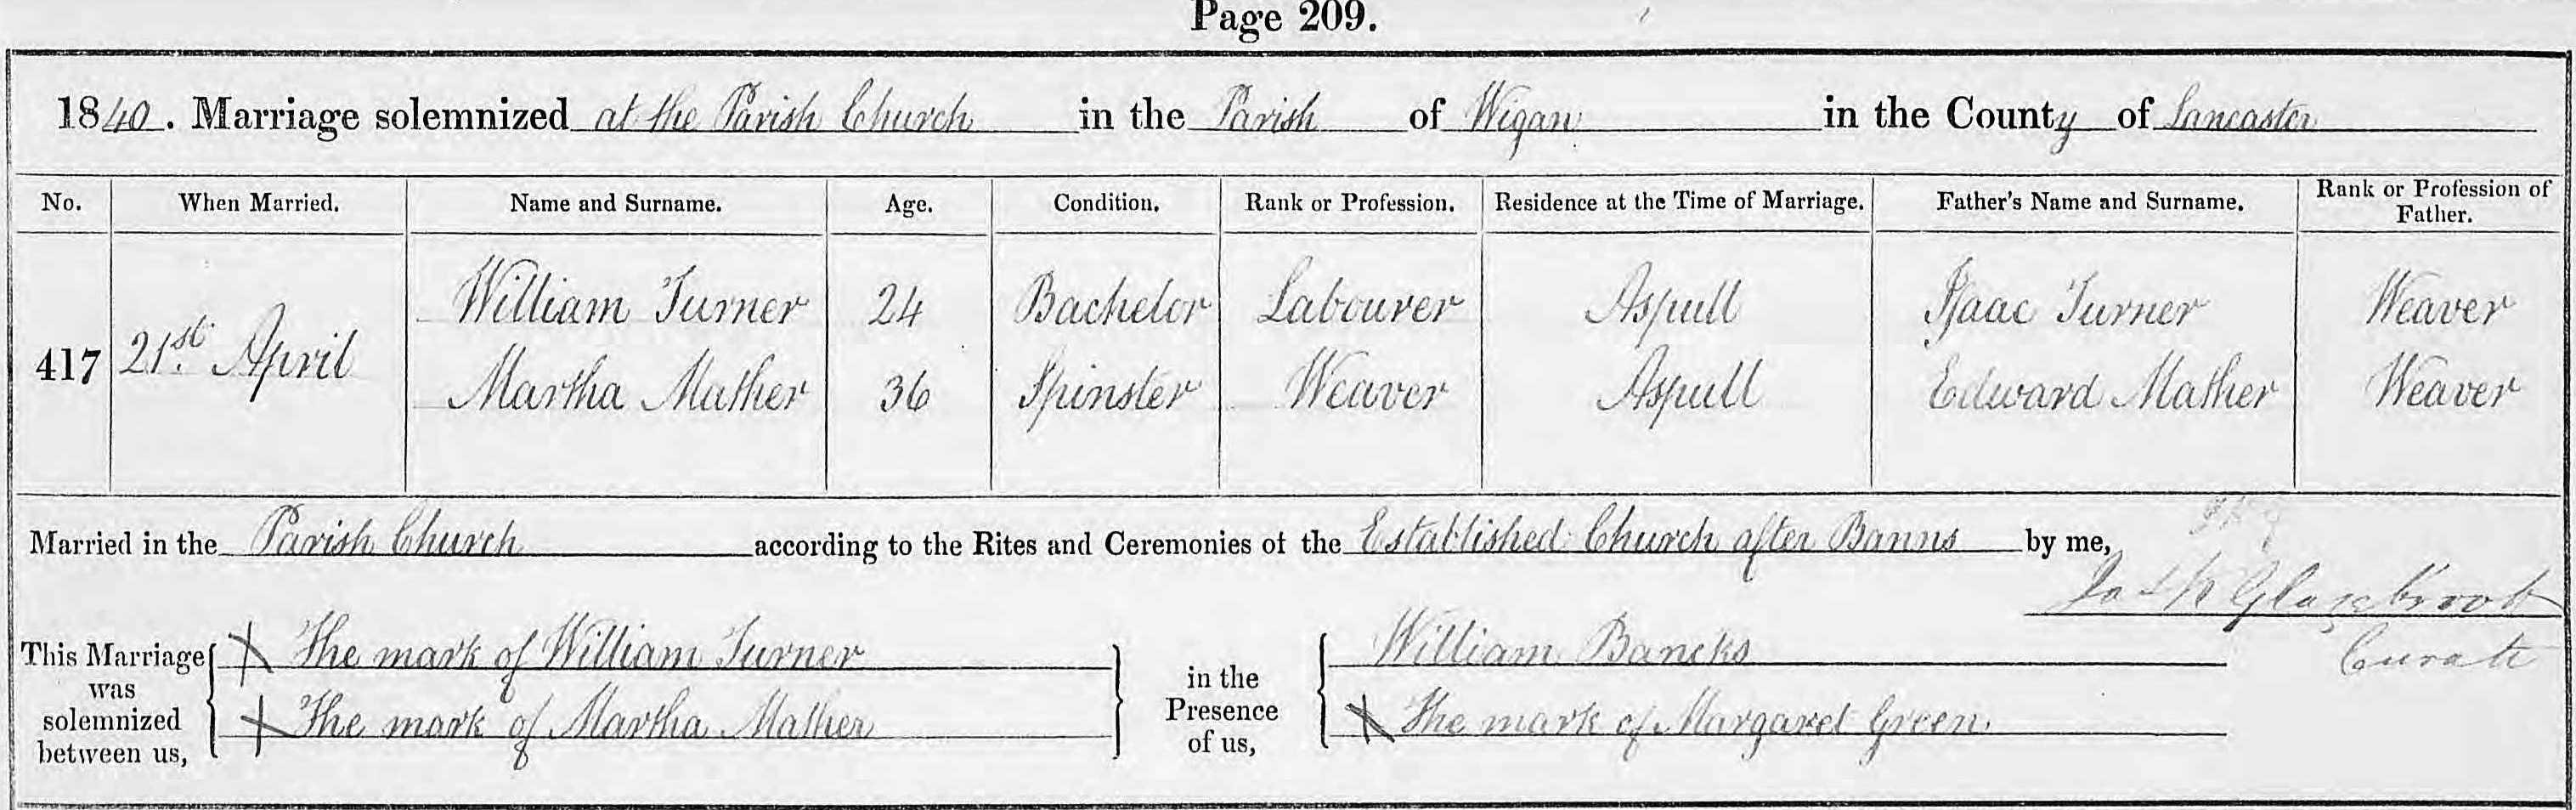 Page 209.
1840. Marriage solemnized at the Parish Church in the Parish of Wigan in the County of Lancaster
No. When Married. Name and Surname. Age. Condition. Rank or Profession. Residence at the Time of Marriage. Father's Name and Surname. Rank or Profession of Father.
William Turner 24 Bachelor Labourer Aspull Isaac Turner Weaver
417 21st. April
Martha Mather 36 Spinster Weaver Aspull Edward Mather Weaver
Married in the Parish Church according to the Rites and Ceremonies of the Established Church after Banns by me,
Glazebrook
Curate
This Marriage was solemnized between us,
X The mark of William Turner
X The mark of Martha Mather
in the Presence of us,
William Bancks
X The mark of Margaret Green